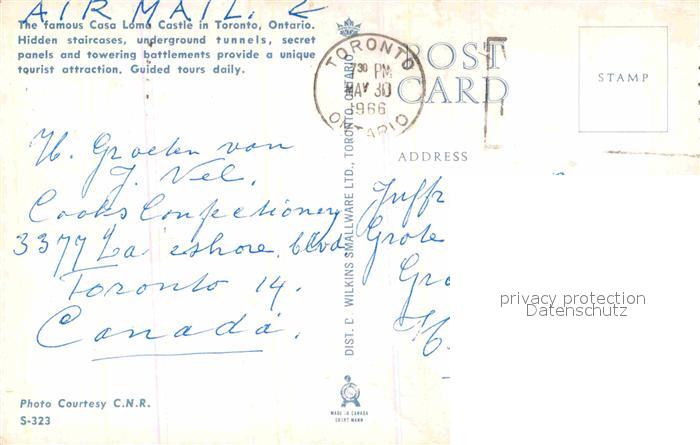 AIR MAIL.
The famous Casa Loma Castle in Toronto, Ontario.
Hidden staircases, underground tunnels, secret
panels and towering battlements provide a unique
tourist attraction. Guided tours daily.
H. Groeten van
J. Vel.
Cooks Confectionery
3377 Lakeshore. blvd
Toronto 14.
Canada.
Photo Courtesy C.N.R.
S-323
DIST. BY WILKINS SMALLWARE LTD., TORONTO, ONTARIO
MADE IN CANADA
TORONTO
7 30 PM
MAY 30
1966
ONTARIO
POST
CARD
STAMP
ADDRESS
Juffr
Grote
Gro
H.
privacy protection
Datenschutz